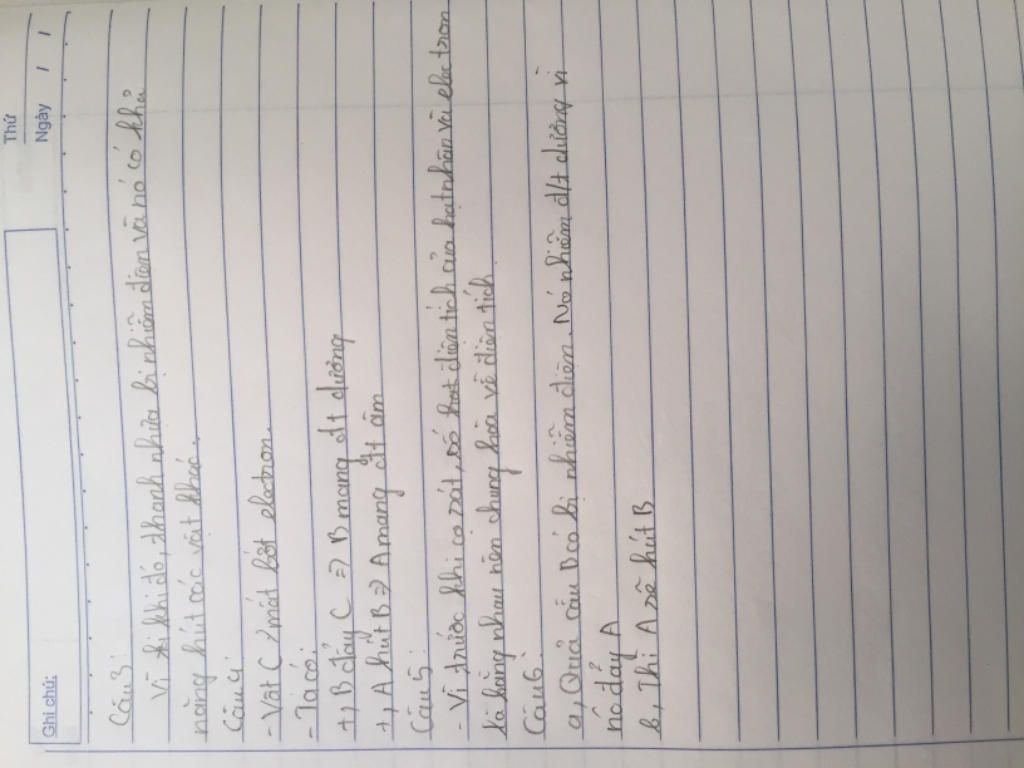 Thứ
Ngày / /
Ghi chú:
Câu 3:
Vì khi đó, thanh nhựa bị nhiễm điện và nó có khả
năng hút các vật khác.
Câu 4:
- Vật C mất bớt electron.
- Ta có:
+, B đẩy C => B mang đt dương
+, A hút B => A mang đt âm
Câu 5:
- Vì trước khi cọ xát, số hạt điện tích của hạt nhân và electron
là bằng nhau nên chung hòa về điện tích.
Câu 6:
a, Quả cầu B có bị nhiễm điện. Nó nhiễm đ/t dương vì
nó đẩy A
b, Thì A sẽ hút B